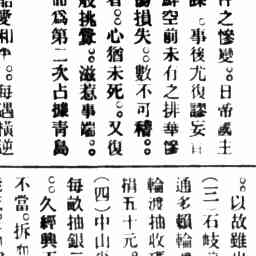 件之慘變。日帝國主
謀。事後尤復謬妄
鮮空前未有之排華慘
傷損失。數不可稽。
者。心猶未死。又復
般挑釁。滋惹事端。
而為第二次占據青島
酷愛和平。每遇橫逆
。以故雖出
(三)石岐
通多賴輪
輪渡抽收
捐五十元。
(四)中山
每畝抽銀三
。久經興工
不當。拆